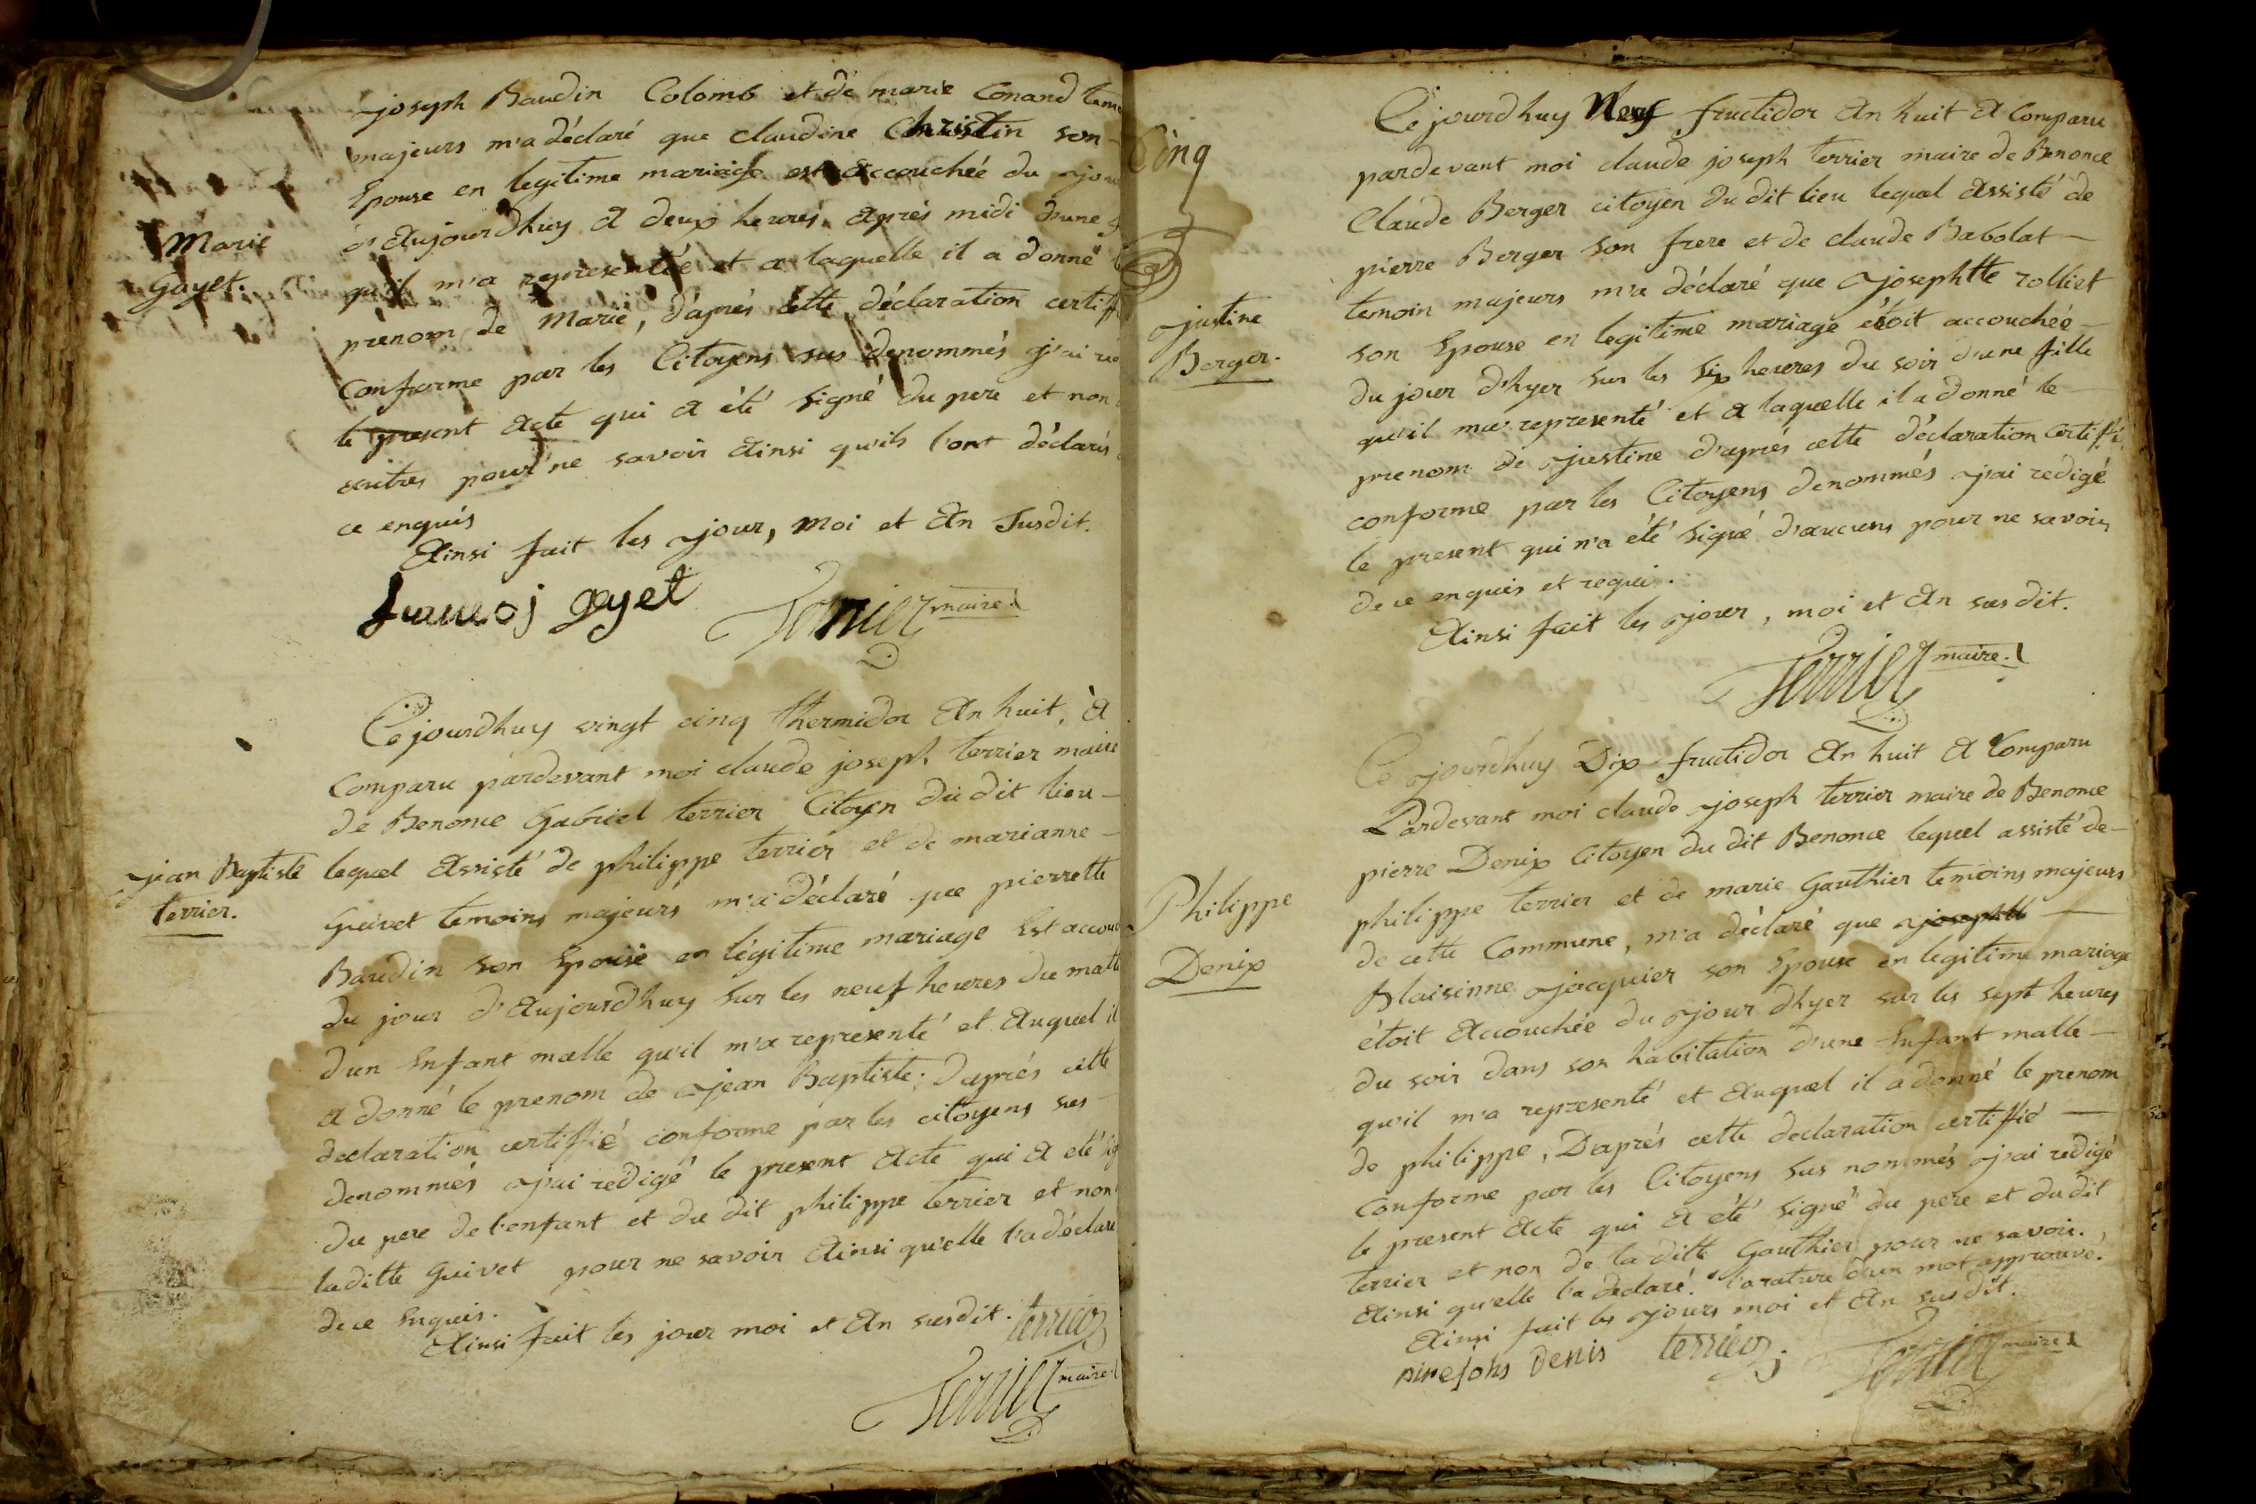 joseph Baudin Colomb et de marie Conand tem
majeurs m'a déclaré que claudine Christin son
Epouse en legitime mariage est accouchée du jour
d'aujourdhuy a deux heures après midi d'une
Marie
Gayet.
qu'il m'a representée et a laquelle il a donné
prenom de Marie, d'après cette déclaration certiff
conforme par les Citoyens sus denommés j'ai
le present acte qui a été signé du pere et non
autres pour ne savoir ainsi qu'ils l'ont déclarés
ce enquis
Ainsi fait les jour, moi et an susdit.
francoj gyet Terrier maire
Ce jourdhuy vingt cinq thermidor an huit, à
comparu pardevant moi claude joseph terrier maire
de Benonce Gabriel terrier Citoyen du dit lieu
jean Baptiste
terrier.
lequel assisté de philippe terrier et de marianne
Guivet temoins majeurs m'a déclaré que pierrette
Baudin son Epouse en légitime mariage Est accou
du jour d'aujourdhuy sur les neuf heures du matt
d'un Enfant malle qu'il m'a representé et auquel il
a donné le prenom de jean Baptiste; d'après cette
declaration certiffié conforme par les citoyens sus
denommés j'ai redigé le present acte qui a eté sig
du pere de l'enfant et du dit philippe terrier et non
laditte Guivet pour ne savoir ainsi qu'elle l'a déclaré
de ce Enquis.
Ainsi fait les jour moi et an susdit. terrier
Terrier maire
Cinq
Ce jourdhuy Neuf fructidor an huit a comparu
pardevant moi claude joseph terrier maire de Benonce
Claude Berger citoyen du dit lieu lequel assisté de
pierre Berger son frere et de claude Babolat
justine
Berger.
temoin majeurs m'a déclaré que josephtte rolliet
son Epouse en legitime mariage étoit accouchée
du jour d'hyer sur les six heures du soir d'une fille
qu'il ma representé et a laquelle il a donné le
prenom de justine d'après cette déclaration certiffi
conforme par les Citoyens denommés j'ai redigé
le present qui n'a été signé d'aucuns pour ne savoir
de ce enquis et requi.
Ainsi fait les jour, moi et an susdit.
Terrier maire.
Ce jourdhuy Dix fructidor an huit a comparu
Pardevant moi claude joseph terrier maire de Benonce
pierre Denix Citoyen du dit Benonce lequel assisté de
Philippe
Denix
philippe terrier et de marie Gauthier temoins majeurs
de cette Commune, m'a déclaré que josephtt
Blaisinne jacquier son Epouse en legitime mariage
étoit accouchée du jour dhyer sur les sept heures
du soir dans son habitation d'une Enfant malle
qu'il m'a representé et auquel il a donné le prenom
de philippe, D'après cette declaration certiffié
conforme par les Citoyens sus nommés j'ai redigé
le present acte qui a été signé du pere et du dit
terrier et non de la ditte Gauthier pour ne savoir.
ainsi qu'elle l'a déclaré. l'arature d'un mot approuvé.
Ainsi fait les jours moi et an susdit.
denis terrier Terrier maire